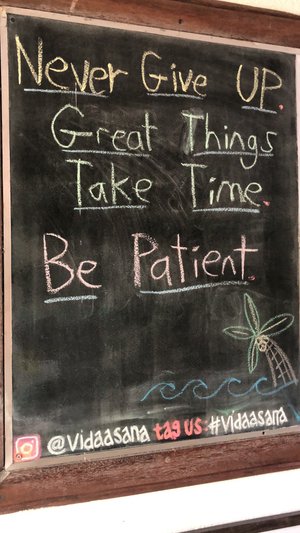 Never Give UP.
Great Things
Take Time.
Be Patient.
@vidaasana tag us: #vidaasana